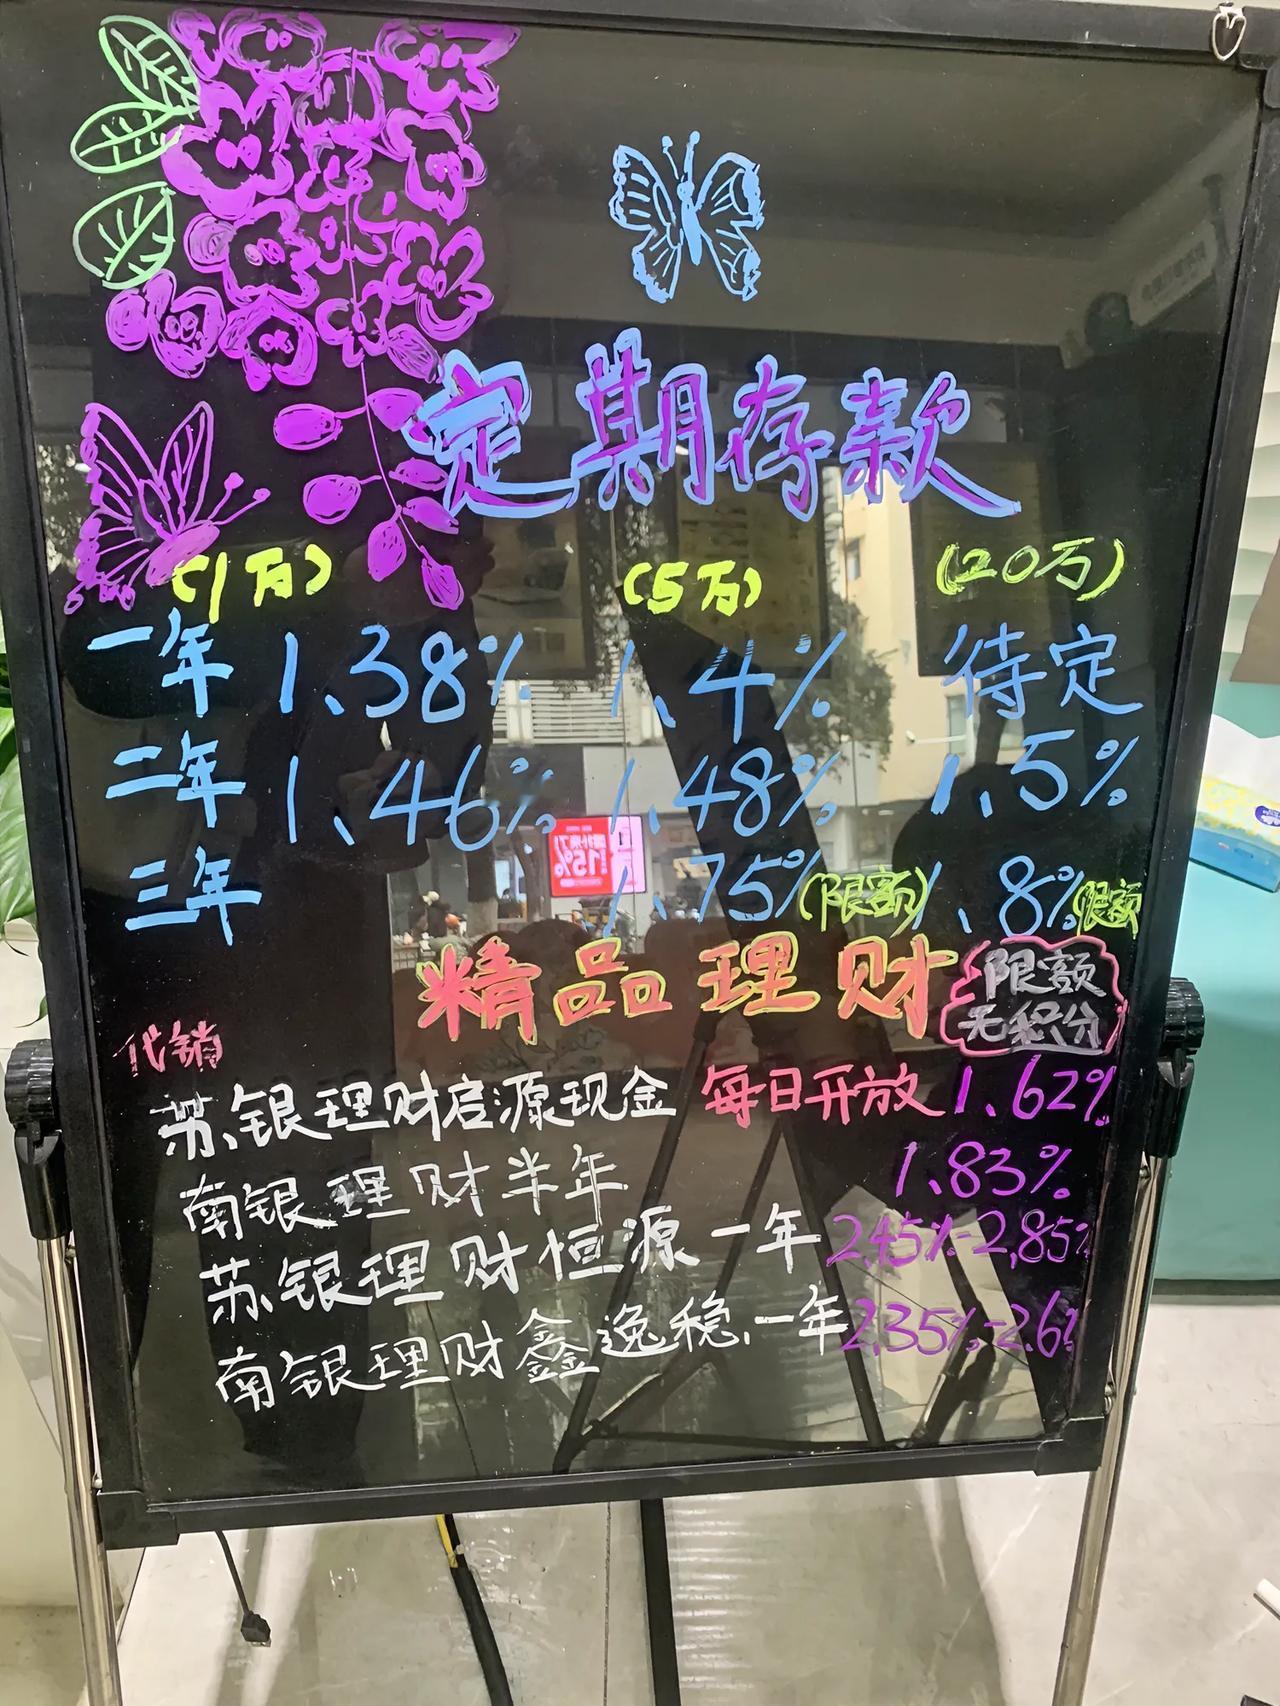 定期存款
(1万) (5万) (20万)
一年 1、38% 1、4% 待定
二年 1、46% 1、48% 1、5%
三年 1、75%(限额) 1、8%(限额
精品理财 限额
无积分
代销
苏银理财启源现金 每日开放 1、62%
南银理财半年 1、83%
苏银理财恒源一年 2,45%-2,85%
南银理财鑫鑫逸稳、一年 2,35%-2.6%